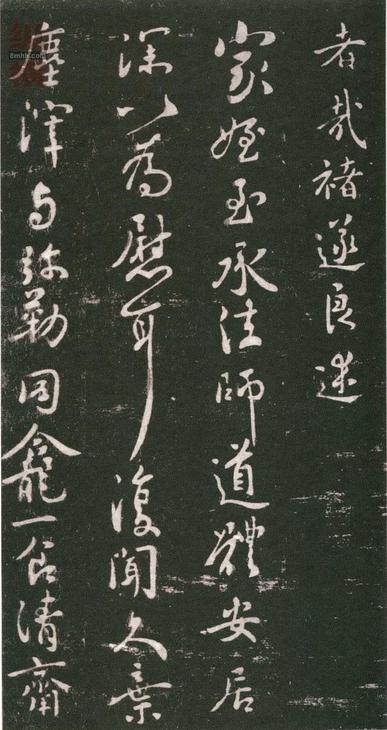 者哉褚遂良述
家姪至承法師道體安居
深以為慰耳復聞久棄
塵滓与弥勒同龕一食清齋
8mhh.com